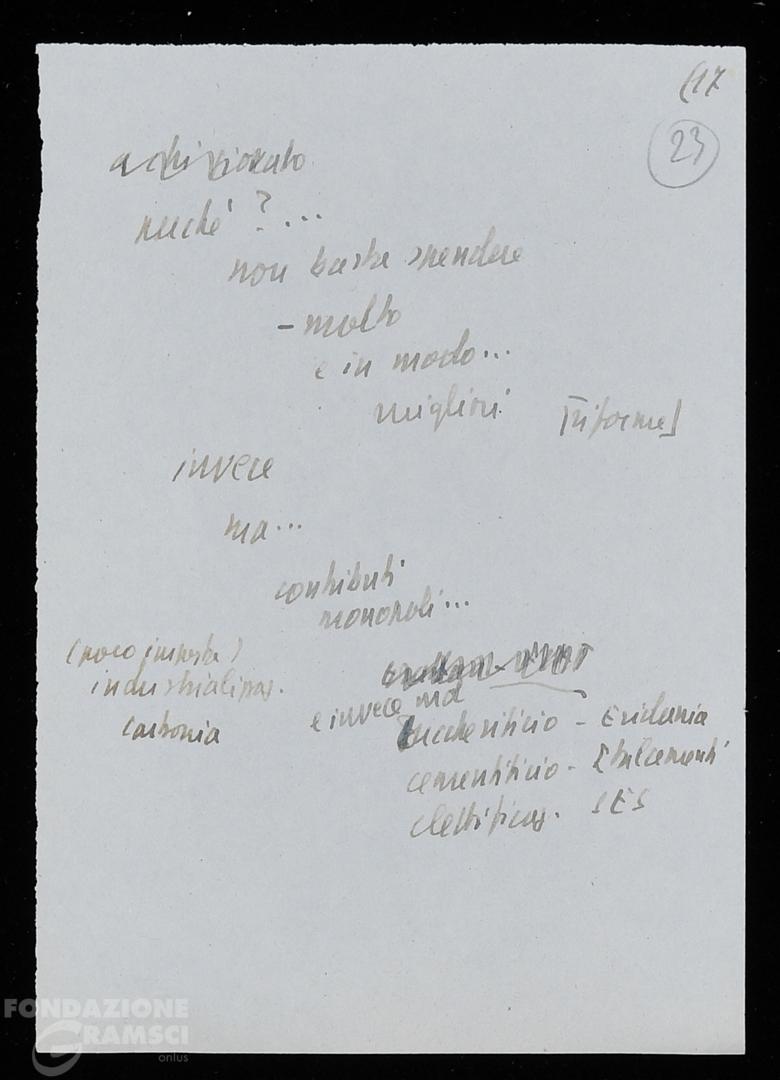 (17
23
a chi
perché? ...
non basta spendere
- molto
e in modo...
migliori [riforme]
invece
ma...
contributi
monopoli...
(poco imposta)
industrializzaz.
Carbonia
e invece ma
zuccherificio - Eridania
cementificio - Italcementi
elettrificaz. SES
FONDAZIONE
GRAMSCI
onlus